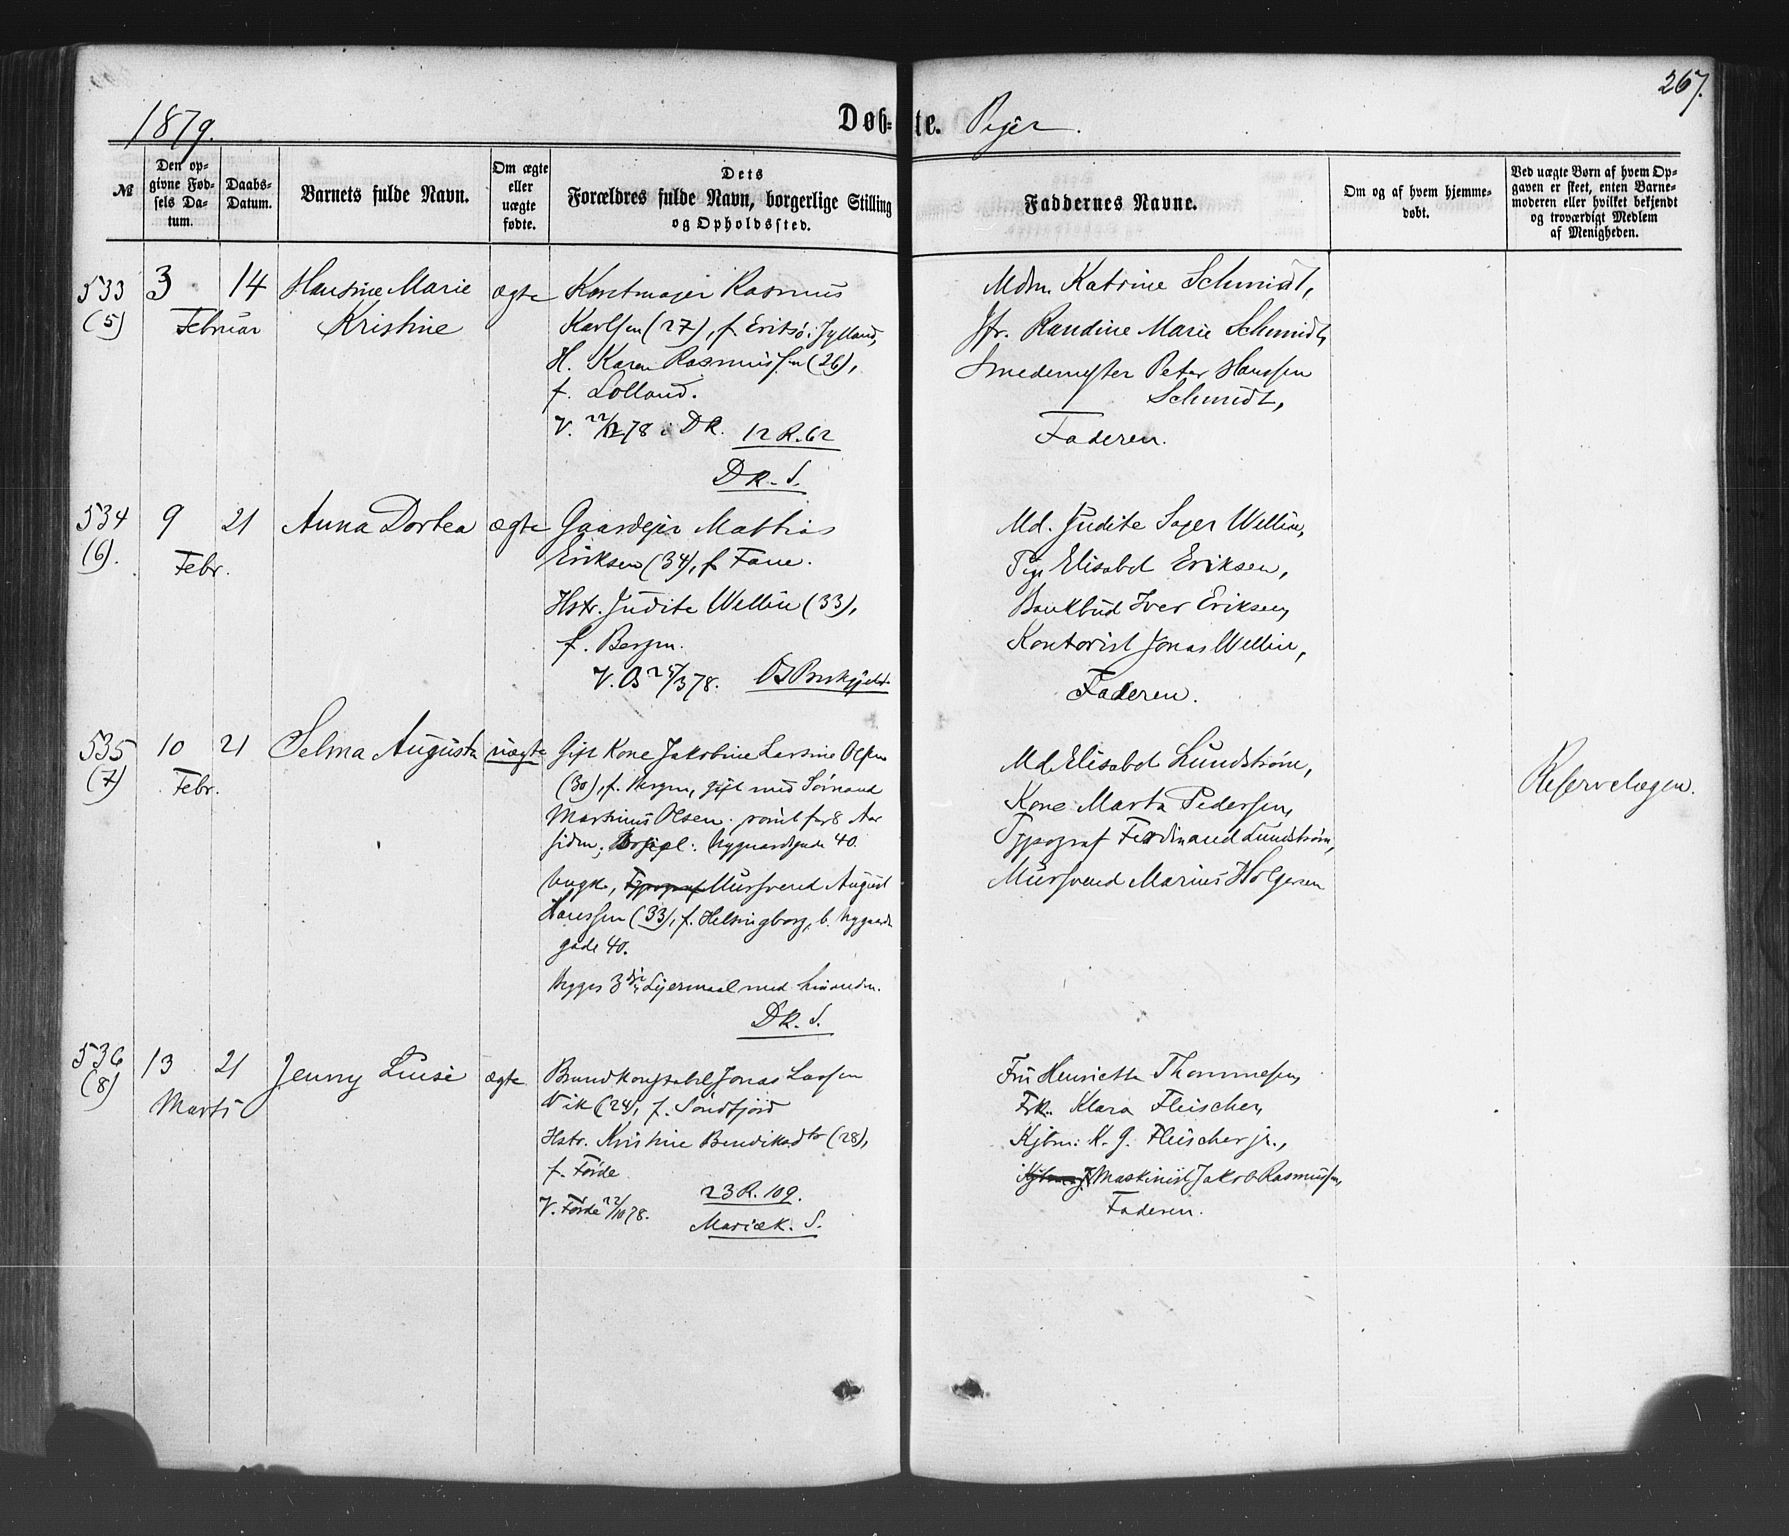 267.
1879.
Døb-te. Piger.
№
Den op-
givne Fød-
sels Da-
tum.
Daabs-
Datum.
Barnets fulde Navn.
Om ægte
eller
uægte
fødte.
Dets
Forældres fulde Navn, borgerlige Stilling
og Opholdssted.
Faddernes Navne.
Om og af hvem hjemme-
døbt.
Ved uægte Børn af hvem Op-
gaven er skeet, enten Barne-
moderen eller hvilket bekjendt
og troværdigt Medlem
af Menigheden.
533
(5)
3
Februar
14
Hansine Marie
Kristine
ægte
Rasmus
Karlsen (27), f. Eritsø i Jylland,
H. Karen Rasmussen (26),
f. Lolland.
V. 22/12 78 i DK. 12 R. 62
DK. S.
Mdm. Katrine Schmidt,
Jfr. Randine Marie Schmidt,
Smedemester Peter Hanssen
Schmidt,
Faderen.
534
(6).
9
Febr.
21
Anna Dortea
ægte
Gaardejer Mattias
Eriksen (34), f. Fane.
Hstr. Judite Wellin (33),
f. Bergen.
V. 25/3 78.
Md. Judite Wellin,
Pige Elisabet Eriksen,
Bankbud Iver Eriksen,
Kontorist Jonas Wellin,
Faderen.
535
(7)
10
Febr.
21
Selma Augusta
uægte
Gift Kone Jakobine Larsine Olsen
(30), f. Bergen, gift med Sømand
Martinus Olsen. rømt for 8 Aar
siden, Nygaardsgade 40.
Ungk., Typograf Mursvend August
Hanssen (33), f. Helsingborg, b. Nygaards
gade 40.
Begges 3die Lejermaal med hinanden.
DK. S.
Md. Elisabet Lundstrøm,
Kone Marta Pedersen,
Typograf Ferdinand Lundstrøm,
Mursvend Marius Holgersen
Reservelægen.
536
(8)
13
Marts
21
Jenny Luise
ægte
Brandkonstabel Jonas Larsen
Vik (24), f. Søndfjord
Hstr. Kristine Bendiksdtr (28),
f. Førde
V. Førde 22/10 78.
23 R. 109.
Mariæk. S.
Fru Henriette Thommesen,
Frk. Klara Fleischer,
Kjbm. K. G. Fleischer jr.,
Maskinist Jakob Rasmussen,
Faderen.